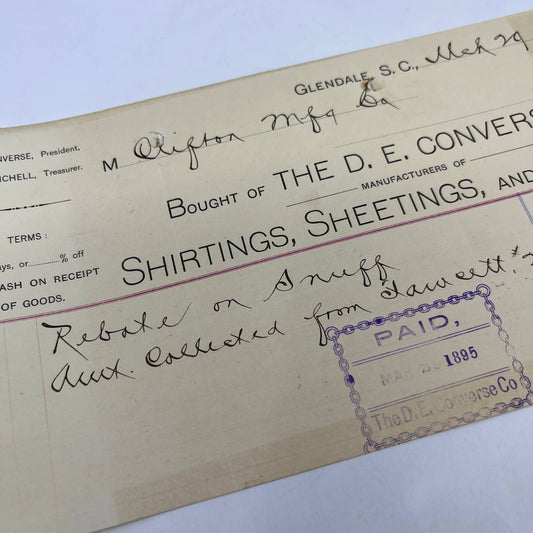 GLENDALE, S. C., Mch 29
NVERSE, President.
ICHELL, Treasurer.
M Clifton Mfg Co
BOUGHT OF THE D. E. CONVERS
MANUFACTURERS OF
TERMS:
ays, or % off
ASH ON RECEIPT
OF GOODS.
SHIRTINGS, SHEETINGS, AND
Rebate on Snuff
Amt. Collected from Fawcett
PAID,
MAR 1895
The D. E. Converse Co